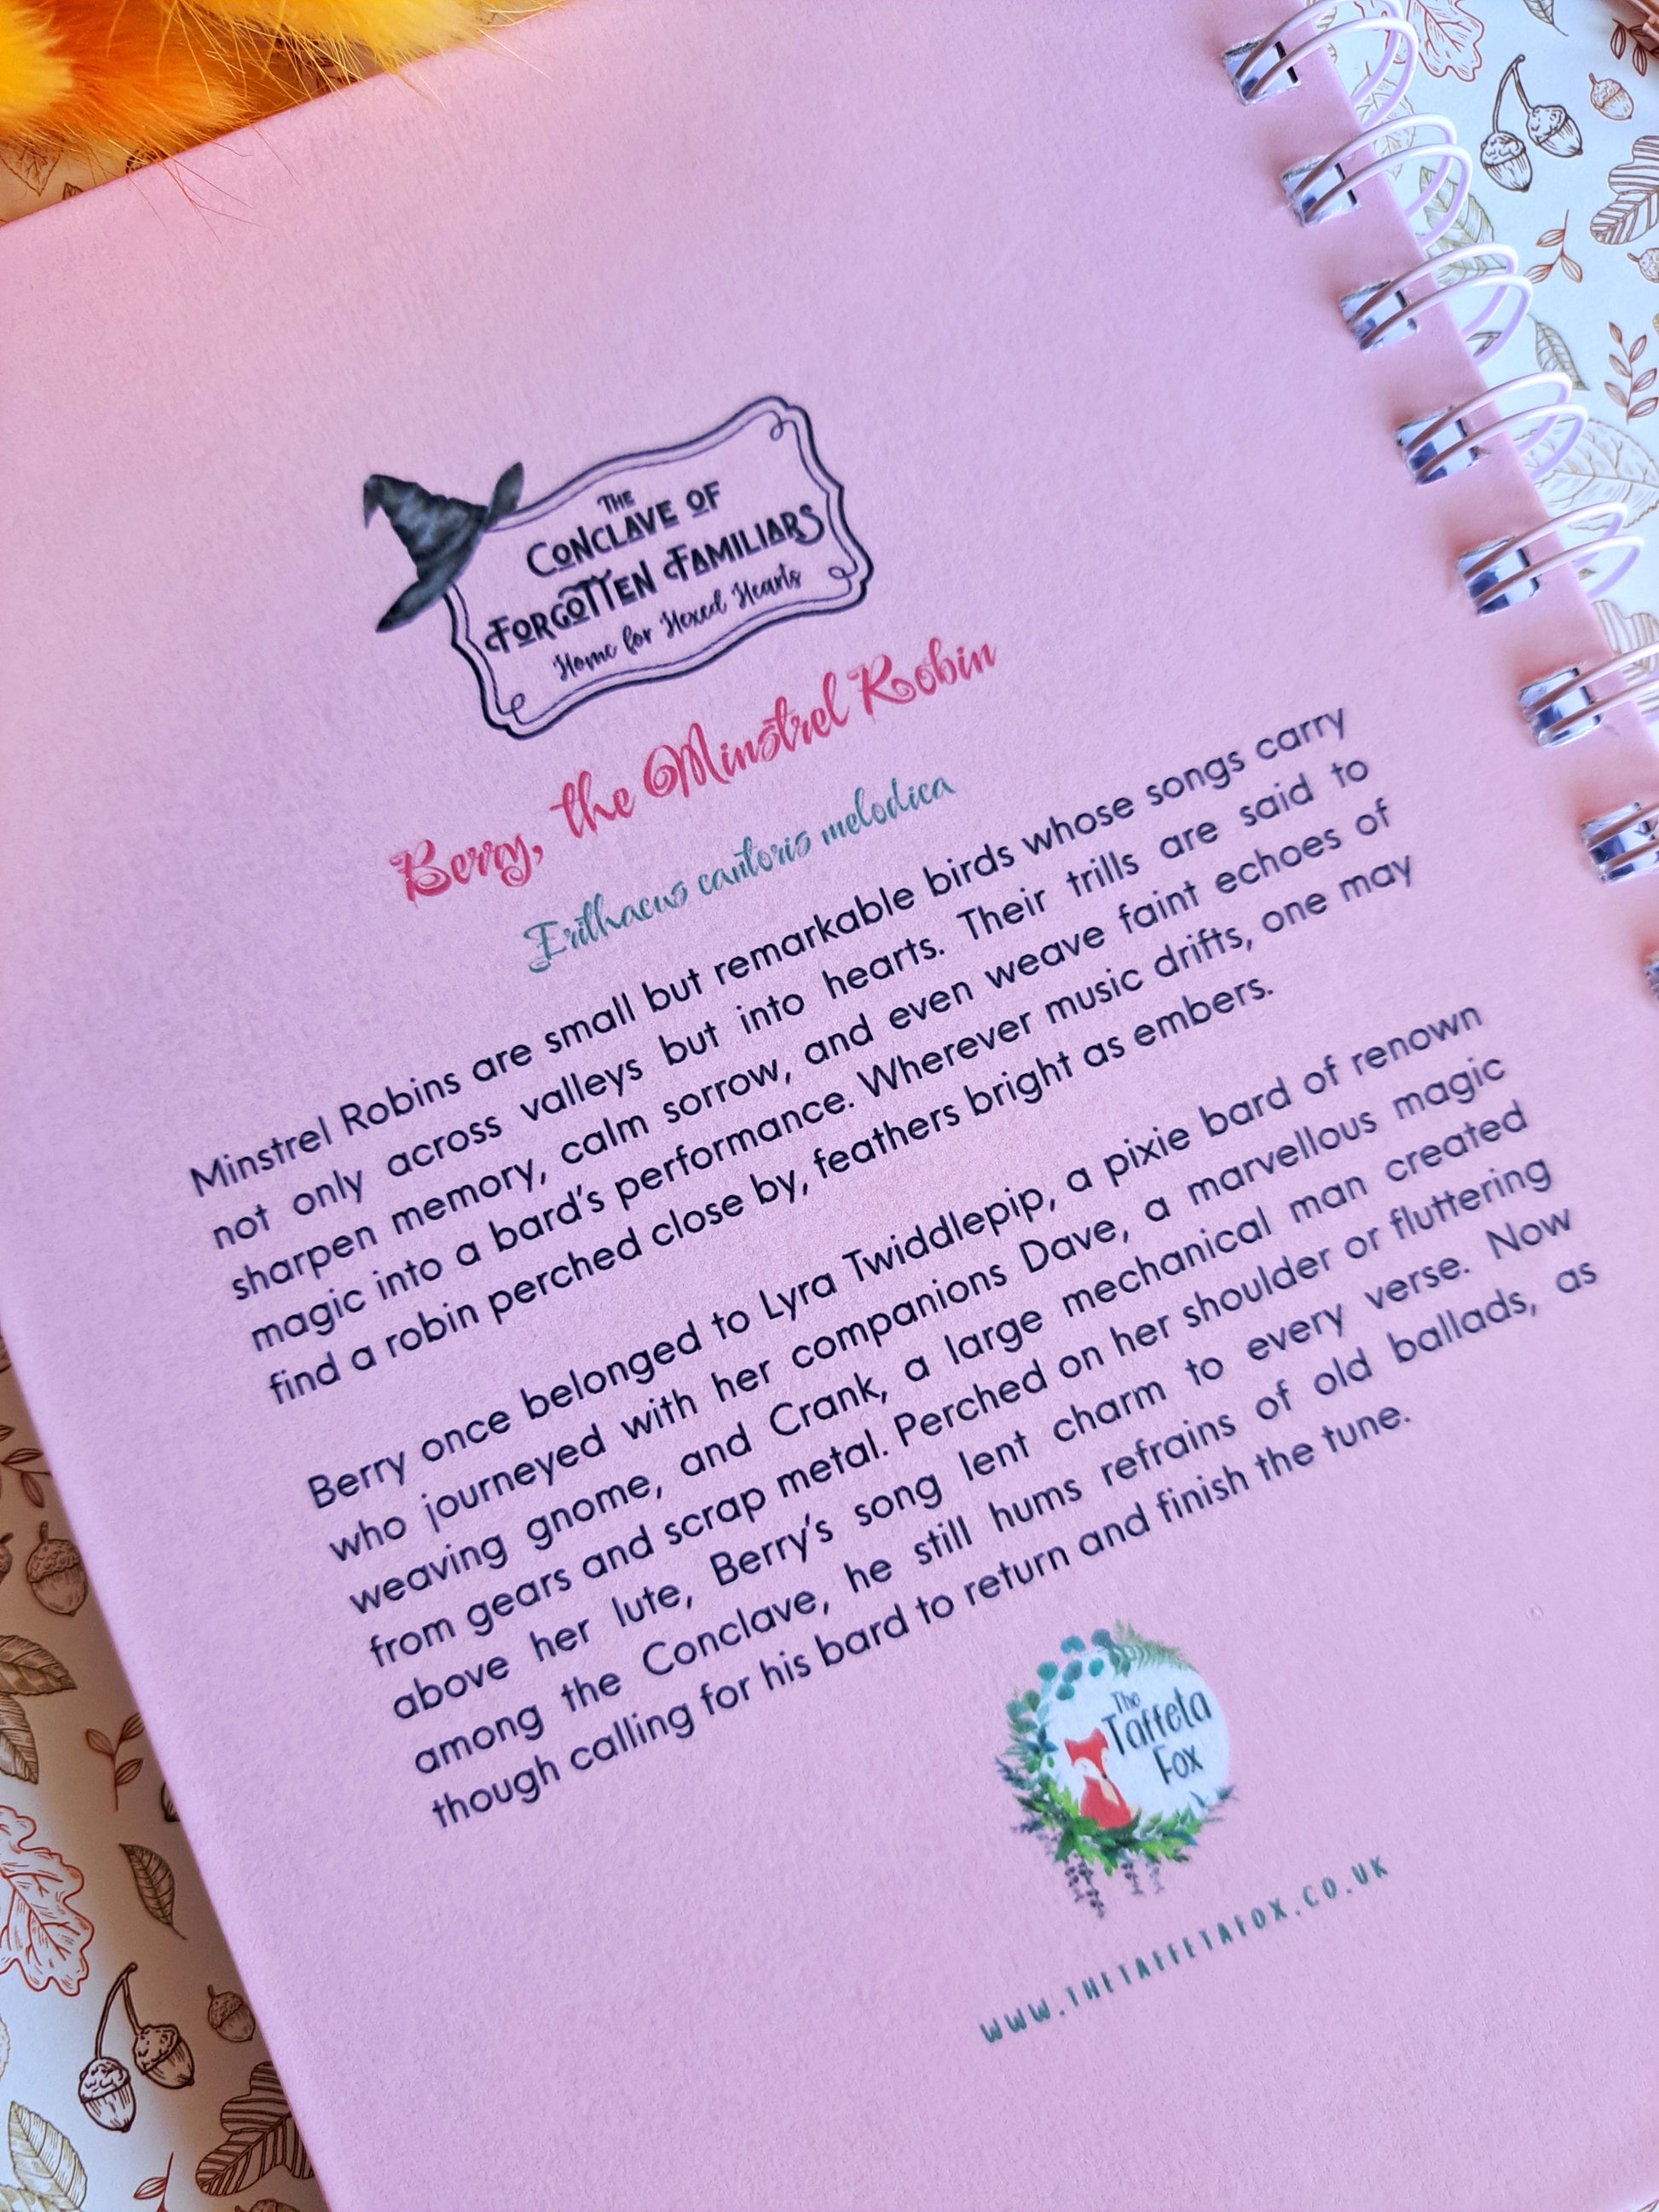 THE
CONCLAVE OF
FORGOTTEN FAMILIARS
Home for Hexed Hearts
Berry, the Minstrel Robin
Erithacus cantoris melodica
Minstrel Robins are small but remarkable birds whose songs carry
not only across valleys but into hearts. Their trills are said to
sharpen memory, calm sorrow, and even weave faint echoes of
magic into a bard's performance. Wherever music drifts, one may
find a robin perched close by, feathers bright as embers.
Berry once belonged to Lyra Twiddlepip, a pixie bard of renown
who journeyed with her companions Dave, a marvellous magic
weaving gnome, and Crank, a large mechanical man created
from gears and scrap metal. Perched on her shoulder or fluttering
above her lute, Berry's song lent charm to every verse. Now
among the Conclave, he still hums refrains of old ballads, as
though calling for his bard to return and finish the tune.
The
Taffeta
Fox
WWW.THETAFFETAFOX.CO.UK